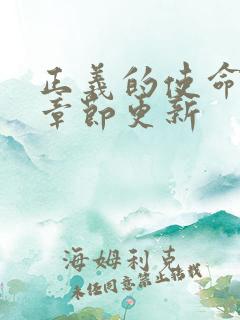 正義的使命
章節更新
海姆利克
未经同意禁止转载